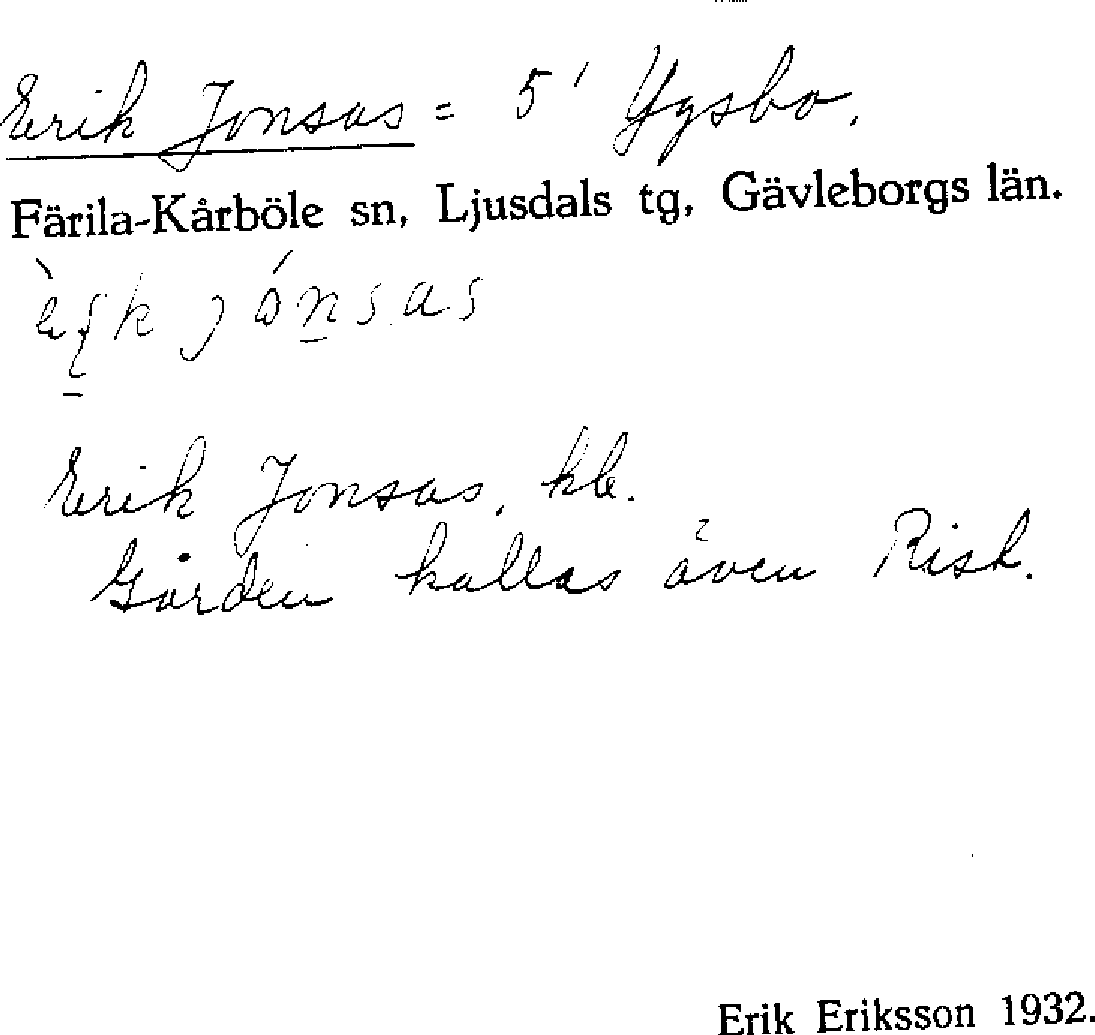 Erik Jonsas = 5' Ygsbo.
Färila-Kårböle sn, Ljusdals tg, Gävleborgs län.
Erik Jonsas, kle.
Gården kallas även Risk.
Erik Eriksson 1932.